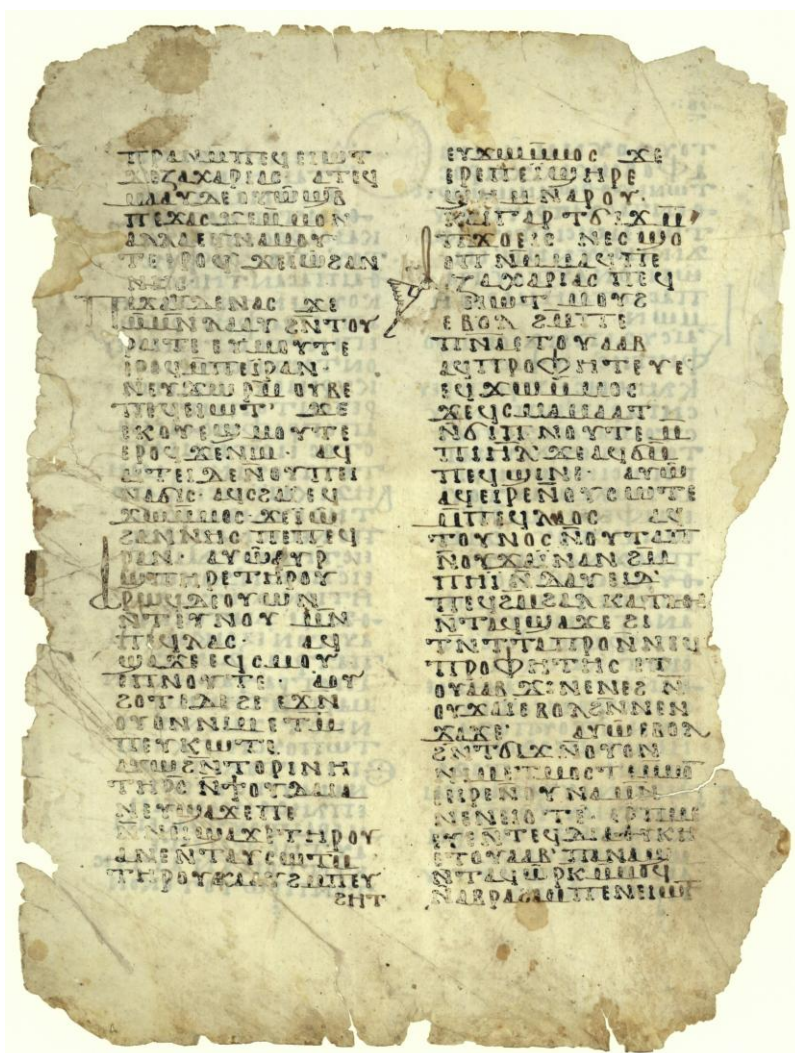 ⲡⲣⲁⲛⲙⲡⲉϥⲉⲓⲱⲧ
ϫⲉⲍⲁⲭⲁⲣⲓⲁⲥ· ⲁⲧⲉϥ
ⲙⲁⲁⲩⲇⲉⲟⲩⲱϣⲃ
ⲡⲉϫⲁⲥϫⲉⲙⲙⲟⲛ
ⲁⲗⲗⲁⲉⲩⲛⲁⲙⲟⲩ
ⲧⲉⲉⲣⲟϥϫⲉⲓⲱϩⲁⲛ
ⲛⲏⲥ
ⲡⲉϫⲁⲩⲇⲉⲛⲁⲥ ϫⲉ
ⲙⲙⲛⲗⲁⲁⲩϩⲛⲧⲟⲩ
ⲣⲁⲓⲧⲉⲉⲩⲙⲟⲩⲧⲉ
ⲉⲣⲟϥⲙⲡⲉⲓⲣⲁⲛ·
ⲛⲉⲩϫⲱⲣⲙⲟⲩⲃⲉ
ⲡⲉϥⲉⲓⲱⲧ· ϫⲉ
ⲉⲕⲟⲩⲉϣⲙⲟⲩⲧⲉ
ⲉⲣⲟϥϫⲉⲛⲓⲙ· ⲁϥ
ⲁⲓⲧⲉⲓⲇⲉⲛⲟⲩⲡⲓ
ⲛⲁϭⲓⲥ· ⲁϥⲥϩⲁⲓⲉϥ
ϫⲱⲙⲙⲟⲥ·ϫⲉⲓⲱ
ϩⲁⲛⲛⲏⲥⲡⲉⲡⲉϥ
ⲣⲁⲛ· ⲁⲩⲱⲁⲩⲣ
ϣⲡⲏⲣⲉⲧⲏⲣⲟⲩ
ⲣⲱϥⲇⲉⲁⲟⲩⲱⲛ
ⲛⲧⲉⲩⲛⲟⲩ ⲙⲛ
ⲡⲉϥⲗⲁⲥ· ⲁϥ
ϣⲁϫⲉⲉϥⲥⲙⲟⲩ
ⲉⲡⲛⲟⲩⲧⲉ· ⲁⲟⲩ
ϩⲟⲧⲉⲇⲉϩⲉ ⲉϫⲛ
ⲟⲩⲟⲛⲛⲓⲙⲉⲧⲙ
ⲡⲉⲩⲕⲱⲧⲉ
ⲁⲩⲱϩⲛⲧⲟⲣⲓⲛⲏ
ⲧⲏⲣⲥⲛϯⲟⲩⲇⲁⲓⲁ
ⲛⲉⲩϣⲁϫⲉⲡⲉ
ⲛⲛⲉⲓϣⲁϫⲉⲧⲏⲣⲟⲩ
ⲁⲛⲉⲛⲧⲁⲩⲥⲱⲧⲙ
ⲧⲏⲣⲟⲩⲕⲁⲁⲩϩⲙⲡⲉⲩ
ϩⲏⲧ
ⲉⲩϫⲱⲙⲙⲟⲥ ϫⲉ
ⲉⲣⲉⲡⲉⲓϣⲏⲣⲉ
ϣⲏⲙⲛⲁⲣⲟⲩ·
ⲕⲁⲓⲅⲁⲣⲧϭⲓϫⲙ
ⲡϫⲟⲉⲓⲥ ⲛⲉⲥϣⲟ
ⲟⲡⲛⲙⲙⲁϥⲡⲉ
ⲁⲍⲁⲭⲁⲣⲓⲁⲥⲡⲉϥ
ⲉⲓⲱⲧ ⲙⲟⲩϩ
ⲉⲃⲟⲗ ϩⲙⲡⲉ
ⲡⲛⲁⲉⲧⲟⲩⲁⲁⲃ
ⲁϥⲡⲣⲟⲫⲏⲧⲉⲩⲉ
ⲉϥϫⲱⲙⲙⲟⲥ
ϫⲉϥⲥⲙⲁⲙⲁⲁⲧ
ⲛϭⲓⲡⲛⲟⲩⲧⲉⲙ
ⲡⲓⲏⲗϫⲉⲁϥϭⲙ
ⲡⲉϥϣⲓⲛⲉ· ⲁⲩⲱ
ⲁϥⲉⲓⲣⲉⲛⲟⲩⲥⲱⲧⲉ
ⲙⲡⲉϥⲗⲁⲟⲥ ⲁϥ
ⲧⲟⲩⲛⲟⲥⲛⲟⲩⲧⲁⲡ
ⲛⲟⲩϫⲁⲓⲛⲁⲛϩⲙ
ⲡⲏⲓⲛⲇⲁⲩⲉⲓⲇ
ⲡⲉϥϩⲙϩⲁⲗⲕⲁⲧⲁⲑⲉ
ⲛⲧⲁϥϣⲁϫⲉ ϩⲓ
ⲧⲛⲧⲧⲁⲡⲣⲟⲛⲛⲉϥ
ⲡⲣⲟⲫⲏⲧⲏⲥ ⲉⲧ
ⲟⲩⲁⲁⲃ ϫⲓⲛⲉⲛⲉϩ ⲛ
ⲟⲩϫⲁⲓⲉⲃⲟⲗϩⲛⲛⲉⲛ
ϫⲁϫⲉ· ⲁⲩⲱⲉⲃⲟⲗ
ϩⲛⲧϭⲓϫⲛⲟⲩⲟⲛ
ⲛⲓⲙⲉⲧⲙⲟⲥⲧⲉⲙⲙⲟ
ⲉⲉⲓⲣⲉⲛⲟⲩⲛⲁⲙⲛ
ⲛⲉⲛⲉⲓⲟⲧⲉ· ⲉⲣⲡⲙⲉ
ⲉⲩⲉⲛⲧⲉϥⲇⲓⲁⲑⲏⲕⲏ
ⲉⲧⲟⲩⲁⲁⲃ ⲡⲁⲛⲁϣ
ⲛⲧⲁϥⲱⲣⲕⲙⲙⲟϥ
ⲛⲁⲃⲣⲁϩⲁⲙⲡⲉⲛⲉⲓⲱⲧ